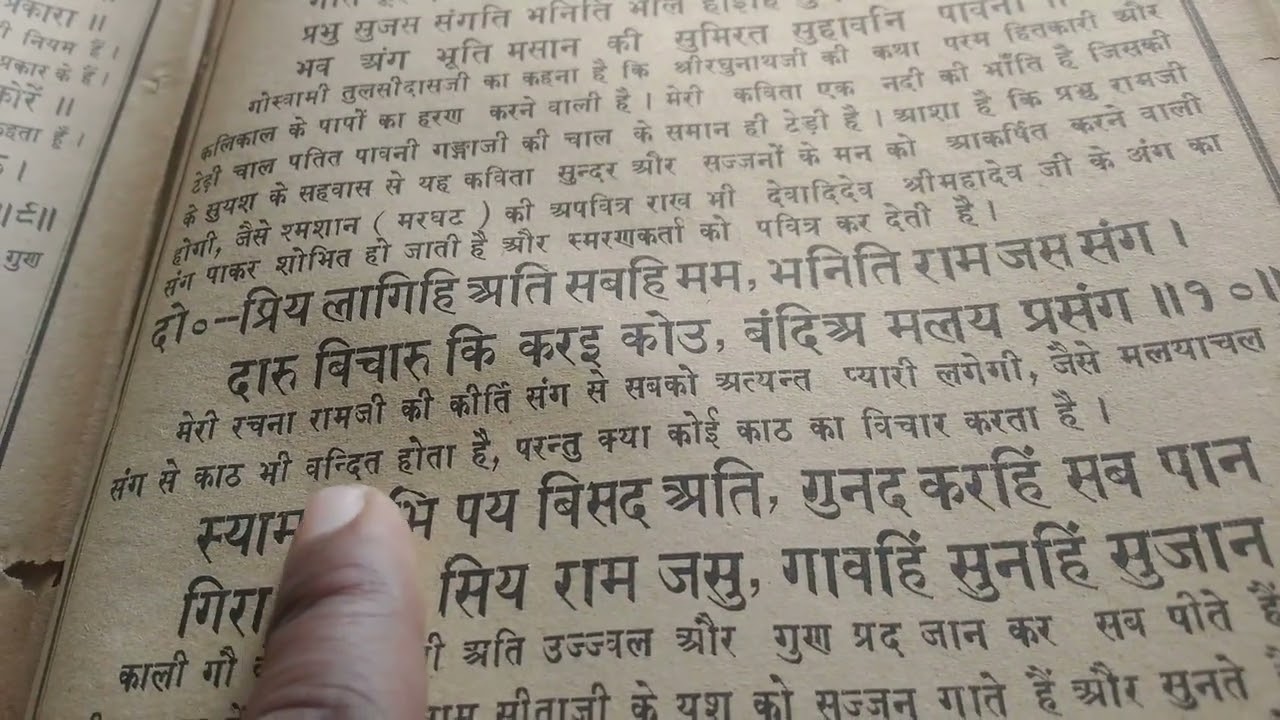 प्रकारा ॥
ी नियम हैं ।
प्रकार के हैं।
कोरें ॥
कहता हूँ ।
॥९॥
गुण
प्रभु सुजस संगति भनिति भलि
भव अंग भूति मसान की सुमिरत सुहावनि पावनी ॥
गोस्वामी तुलसीदासजी का कहना है कि श्रीरघुनाथजी की कथा परम हितकारी और
कलिकाल के पापों का हरण करने वाली है । मेरी कविता एक नदी की भाँति है जिसकी
टेढ़ी चाल पतित पावनी गङ्गाजी की चाल के समान ही टेढ़ी है । आशा है कि प्रभु रामजी
के सुयश के सहवास से यह कविता सुन्दर और सज्जनों के मन को आकर्षित करने वाली
होगी, जैसे श्मशान ( मरघट ) की अपवित्र राख भी देवादिदेव श्रीमहादेव जी के अंग का
संग पाकर शोभित हो जाती है और स्मरणकर्ता को पवित्र कर देती है ।
दो०--प्रिय लागिहि अति सबहि मम, भनिति राम जस संग ।
दारु बिचारु कि करइ कोउ, बंदिअ मलय प्रसंग ॥१०॥
मेरी रचना रामजी की कीर्ति संग से सबको अत्यन्त प्यारी लगेगी, जैसे मलयाचल
संग से काठ भी वन्दित होता है, परन्तु क्या कोई काठ का विचार करता है ।
स्याम भि पय बिसद अति, गुनद करहिं सब पान
गिरा सिय राम जसु, गावहिं सुनहिं सुजान
काली गौ ी अति उज्ज्वल और गुण प्रद जान कर सब पीते हैं
राम सीताजी के यश को सज्जन गाते हैं और सुनते